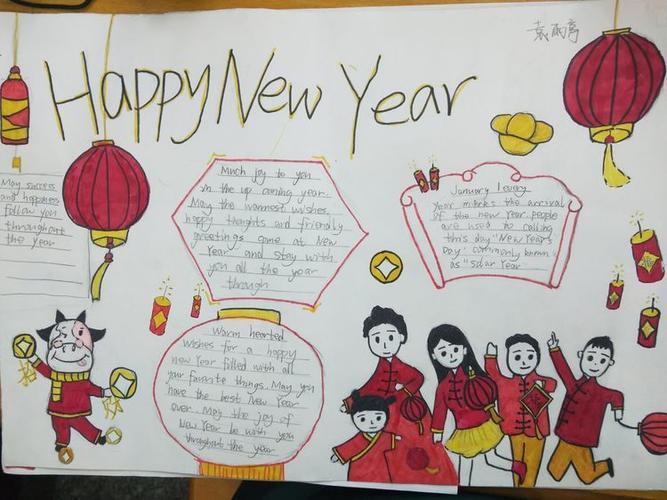 袁雨亭
Happy New Year
May success
and happiness
follow you
throughout
the year
Much joy to you
in the up coming year.
May the warmest wishes,
happy thoghts and friendly
greetings come at New
Year and stay with
you all the year
through
January 1 every
year mareks the arrival
of the new year people
are used to calling
this day "New Year's
Day" commonly known
as "Solar Year"
Warm hearted
wishes for a happy
new Year filled with all
your favorite things. May you
have the best New Year
ever. May the joy of
New Year be with you
throughout the year